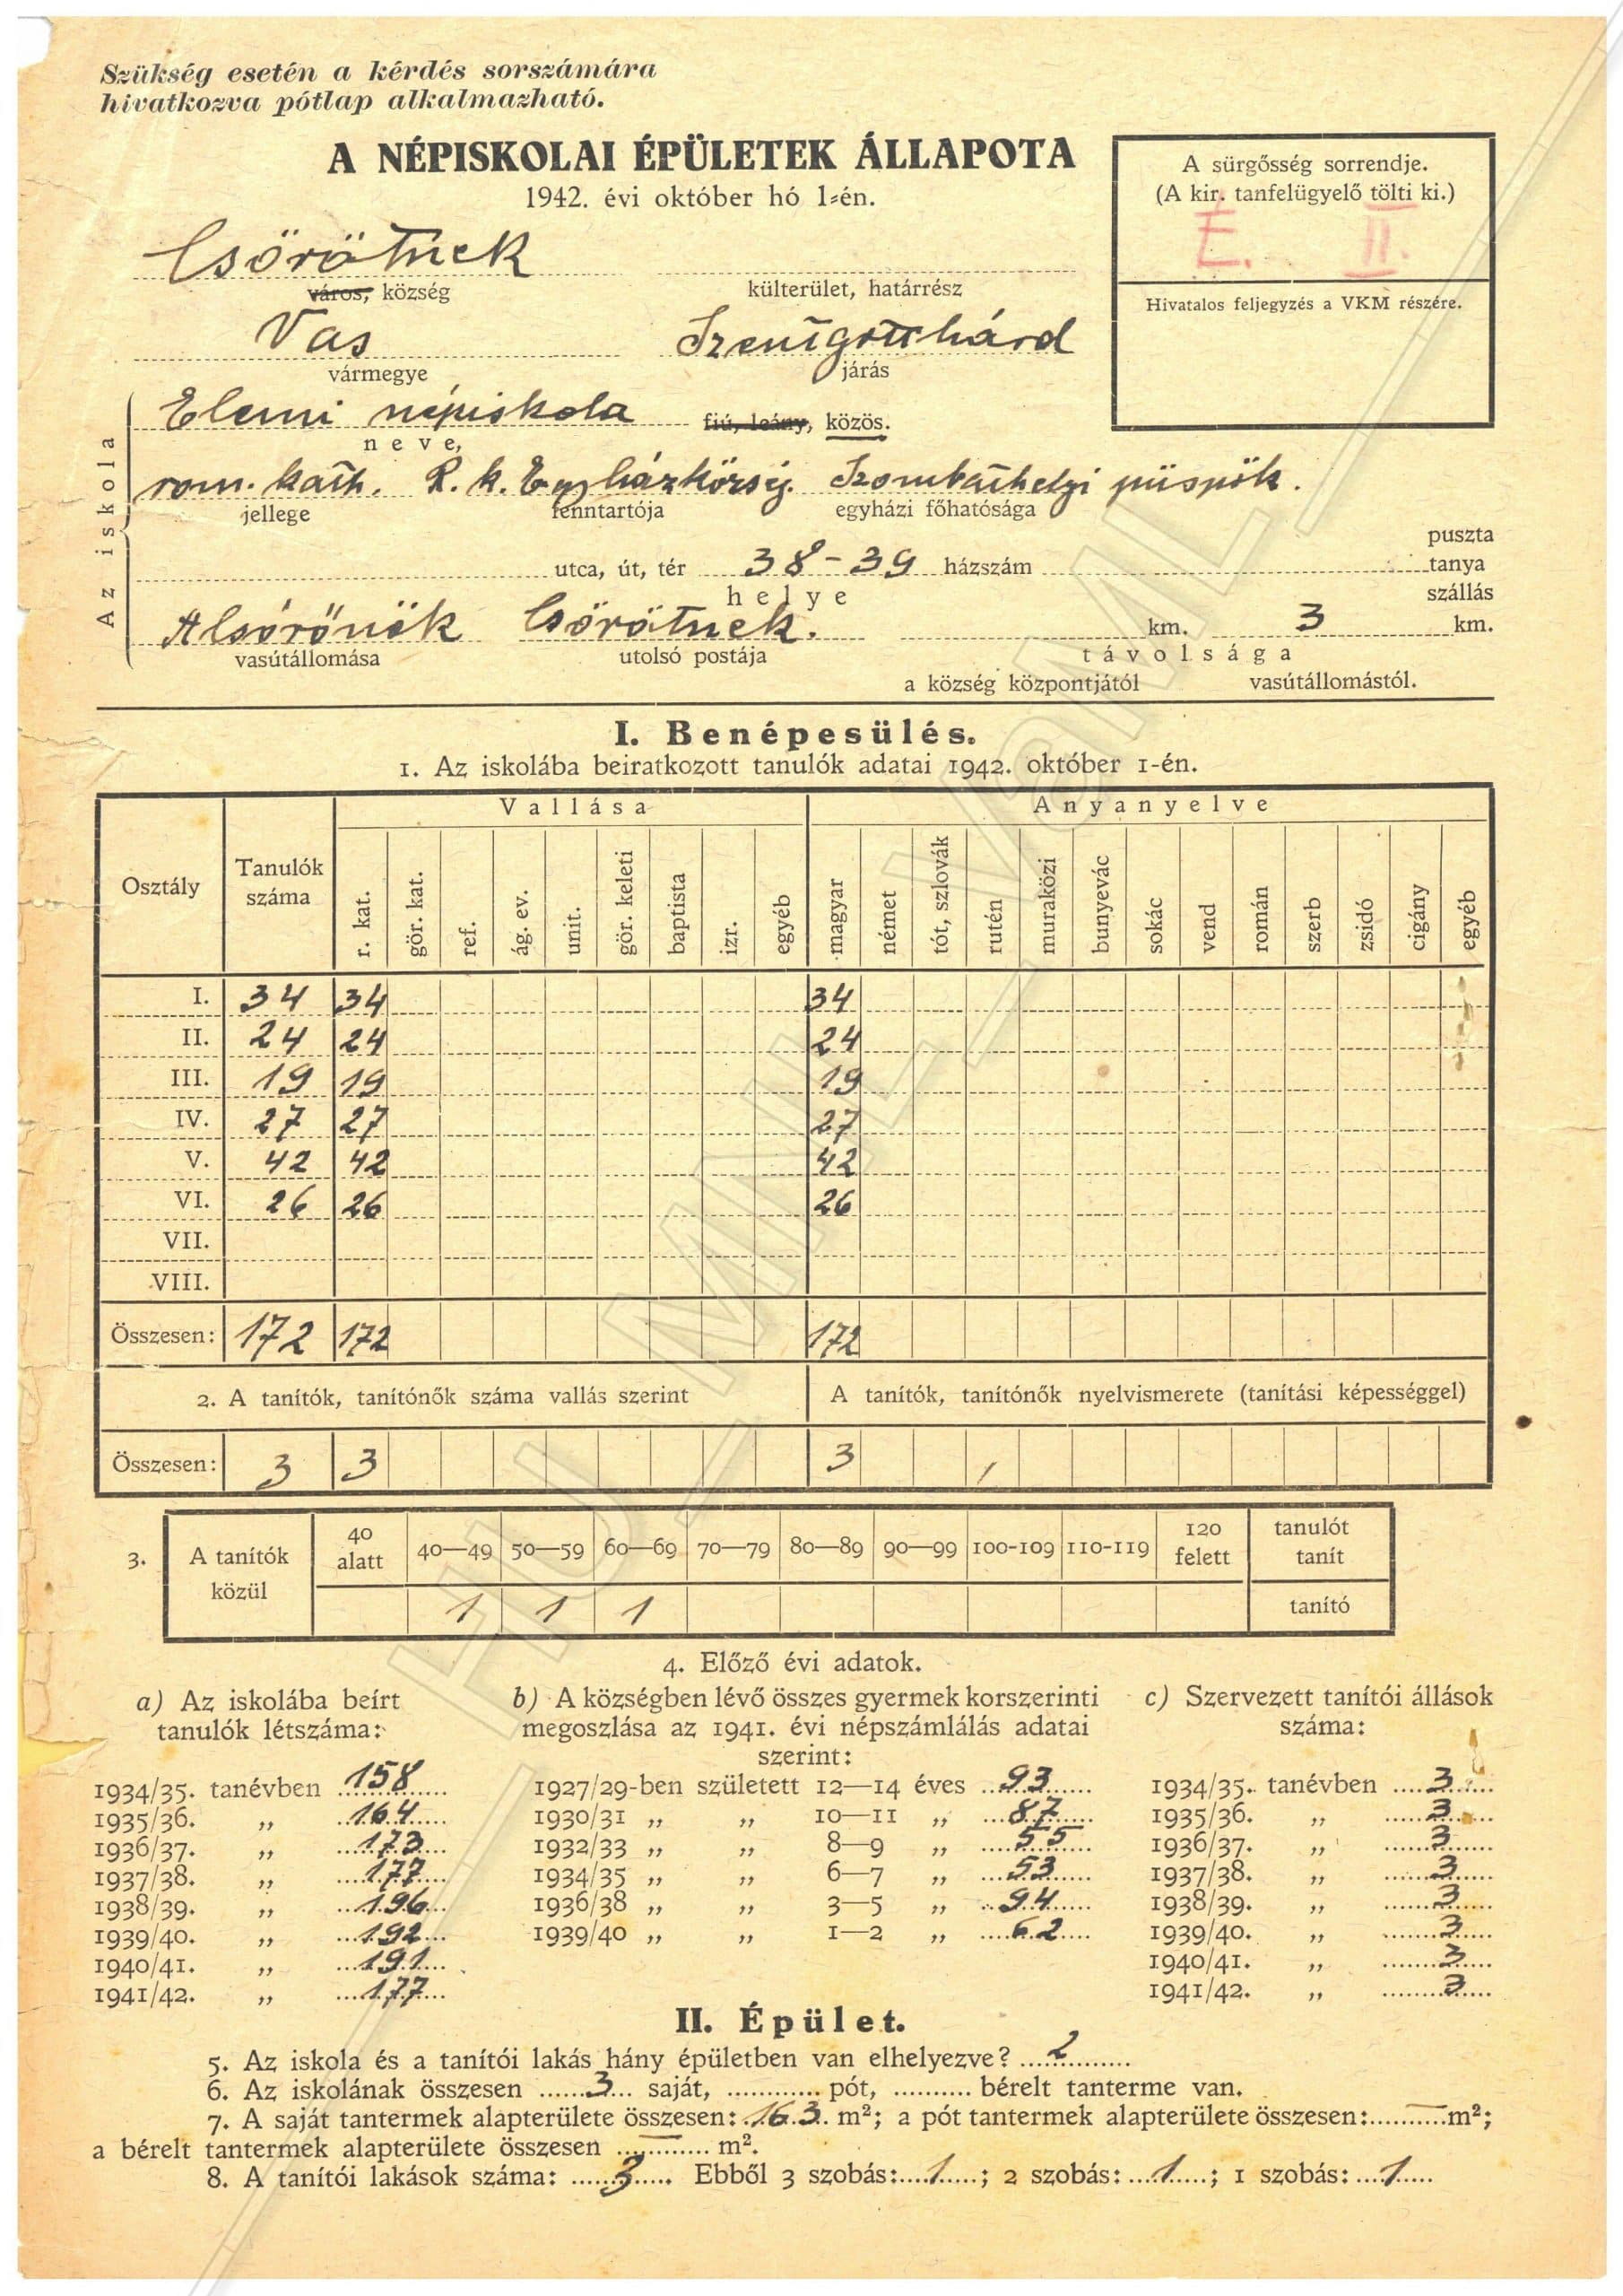 Szükség esetén a kérdés sorszámára
hivatkozva pótlap alkalmazható.
A NÉPISKOLAI ÉPÜLETEK ÁLLAPOTA
1942. évi október hó 1-én.
A sürgősség sorrendje.
(A kir. tanfelügyelő tölti ki.)
É. II.
Hivatalos feljegyzés a VKM részére.
Csörötnek
város, község
külterület, határrész
Vas Szentgotthárd
vármegye járás
Az iskola
Elemi népiskola fiú, leány, közös.
neve,
rom. kath. R. k. Egyházközség. Szombathelyi püspök.
jellege fenntartója egyházi főhatósága
utca, út, tér 38-39 házszám puszta tanya szállás
helye
Alsórönök Csörötnek. km. 3 km.
vasútállomása utolsó postája távolsága
a község központjától vasútállomástól.
I. Benépesülés.
1. Az iskolába beiratkozott tanulók adatai 1942. október 1-én.
Osztály Tanulók száma Vallása Anyanyelve
r. kat. gör. kat. ref. ág. ev. unit. gör. keleti baptista izr. egyéb magyar német tót, szlovák rutén muraközi bunyevác sokác vend román szerb zsidó cigány egyéb
I. 34 34 34
II. 24 24 24
III. 19 19 19
IV. 27 27 27
V. 42 42 42
VI. 26 26 26
VII.
VIII.
Összesen: 172 172 172
2. A tanítók, tanítónők száma vallás szerint A tanítók, tanítónők nyelvismerete (tanítási képességgel)
Összesen: 3 3 3
3. A tanítók közül 40 alatt 40—49 50—59 60—69 70—79 80—89 90—99 100-109 110-119 120 felett tanulót tanít
1 1 1 tanító
4. Előző évi adatok.
a) Az iskolába beírt tanulók létszáma:
1934/35. tanévben 158
1935/36. „ 164
1936/37. „ 173
1937/38. „ 177
1938/39. „ 196
1939/40. „ 192
1940/41. „ 191
1941/42. „ 177
b) A községben lévő összes gyermek korszerinti
megoszlása az 1941. évi népszámlálás adatai
szerint:
1927/29-ben született 12—14 éves 93
1930/31 „ „ 10—11 „ 87
1932/33 „ „ 8—9 „ 55
1934/35 „ „ 6—7 „ 53
1936/38 „ „ 3—5 „ 94
1939/40 „ „ 1—2 „ 62
c) Szervezett tanítói állások
száma:
1934/35. tanévben 3
1935/36. „ 3
1936/37. „ 3
1937/38. „ 3
1938/39. „ 3
1939/40. „ 3
1940/41. „ 3
1941/42. „ 3
II. Épület.
5. Az iskola és a tanítói lakás hány épületben van elhelyezve? 2
6. Az iskolának összesen 3 saját, pót, bérelt tanterme van.
7. A saját tantermek alapterülete összesen: 163 m²; a pót tantermek alapterülete összesen: — m²;
a bérelt tantermek alapterülete összesen — m².
8. A tanítói lakások száma: 3. Ebből 3 szobás: 1; 2 szobás: 1; 1 szobás: 1
HU_MNL_VaML